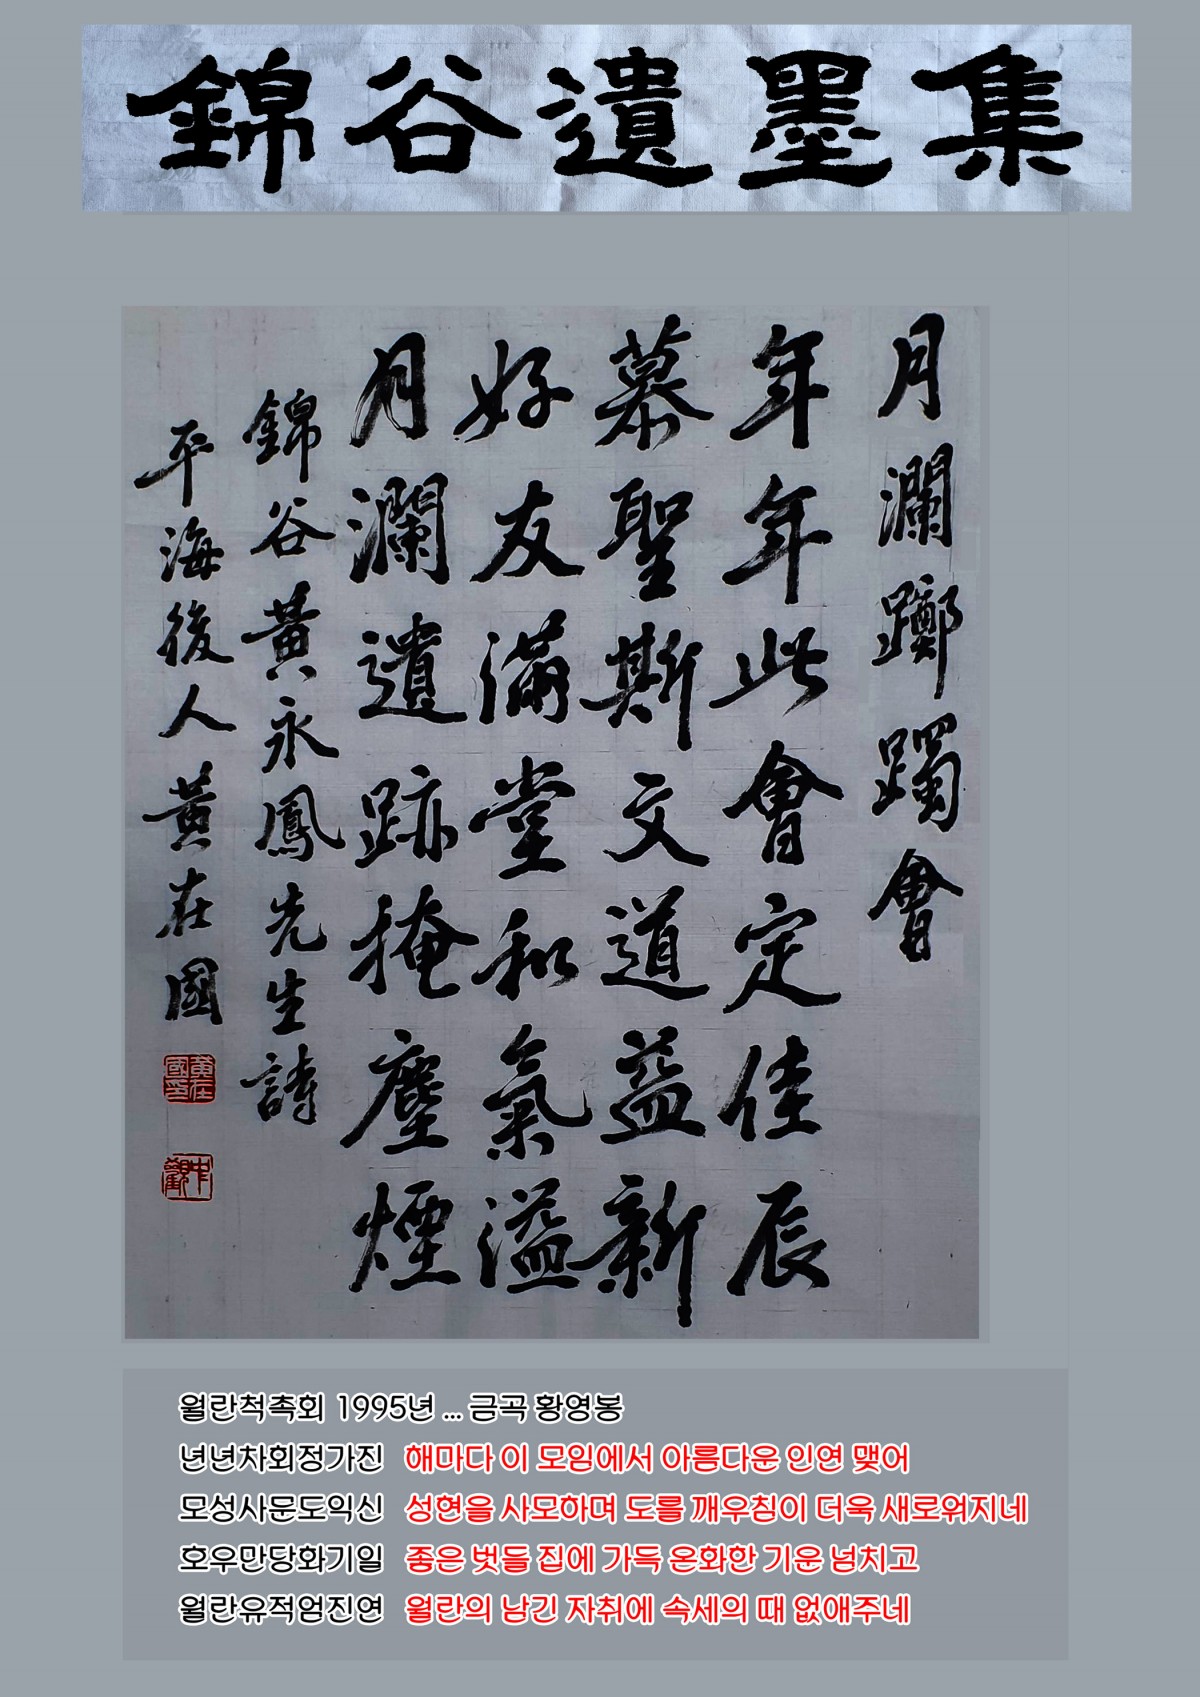 錦谷遺墨集
月瀾躑躅會
年年此會定佳辰
慕聖斯文道益新
好友滿堂和氣溢
月瀾遺跡掩塵煙
錦谷黃永鳳先生詩
平海後人黃在國
월란척촉회 1995년 ... 금곡 황영봉
년년차회정가진 해마다 이 모임에서 아름다운 인연 맺어
모성사문도익신 성현을 사모하며 도를 깨우침이 더욱 새로워지네
호우만당화기일 좋은 벗들 집에 가득 온화한 기운 넘치고
월란유적엄진연 월란의 남긴 자취에 속세의 때 없애주네